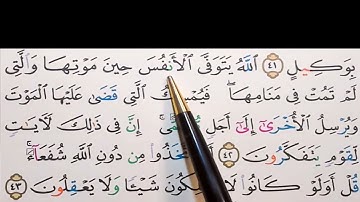 بِوَكِيلٍ ٤١ اللَّهُ يَتَوَفَّى الْأَنفُسَ حِينَ مَوْتِهَا وَالَّتِي
لَمْ تَمُتْ فِي مَنَامِهَا ۖ فَيُمْسِكُ الَّتِي قَضَىٰ عَلَيْهَا الْمَوْتَ
وَيُرْسِلُ الْأُخْرَىٰ إِلَىٰ أَجَلٍ إِنَّ فِي ذَٰلِكَ لَآيَاتٍ
لِقَوْمٍ يَتَفَكَّرُونَ ٤٢ مِن دُونِ اللَّهِ شُفَعَاءَ ۚ
قُلْ أَوَلَوْ كَانُوا لَا شَيْئًا وَلَا يَعْقِلُونَ ٤٣